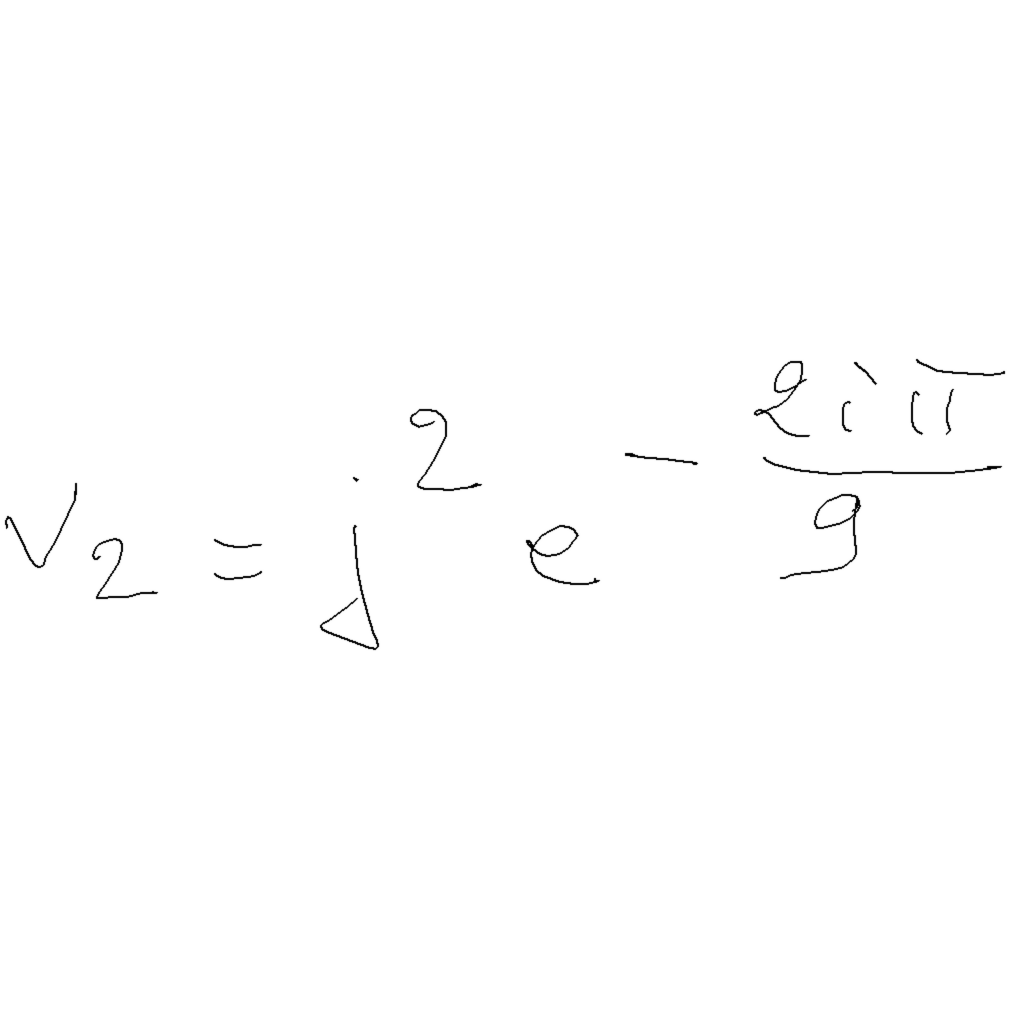 $v_2 = j^2 e^{-\frac{2i\pi}{9}}$